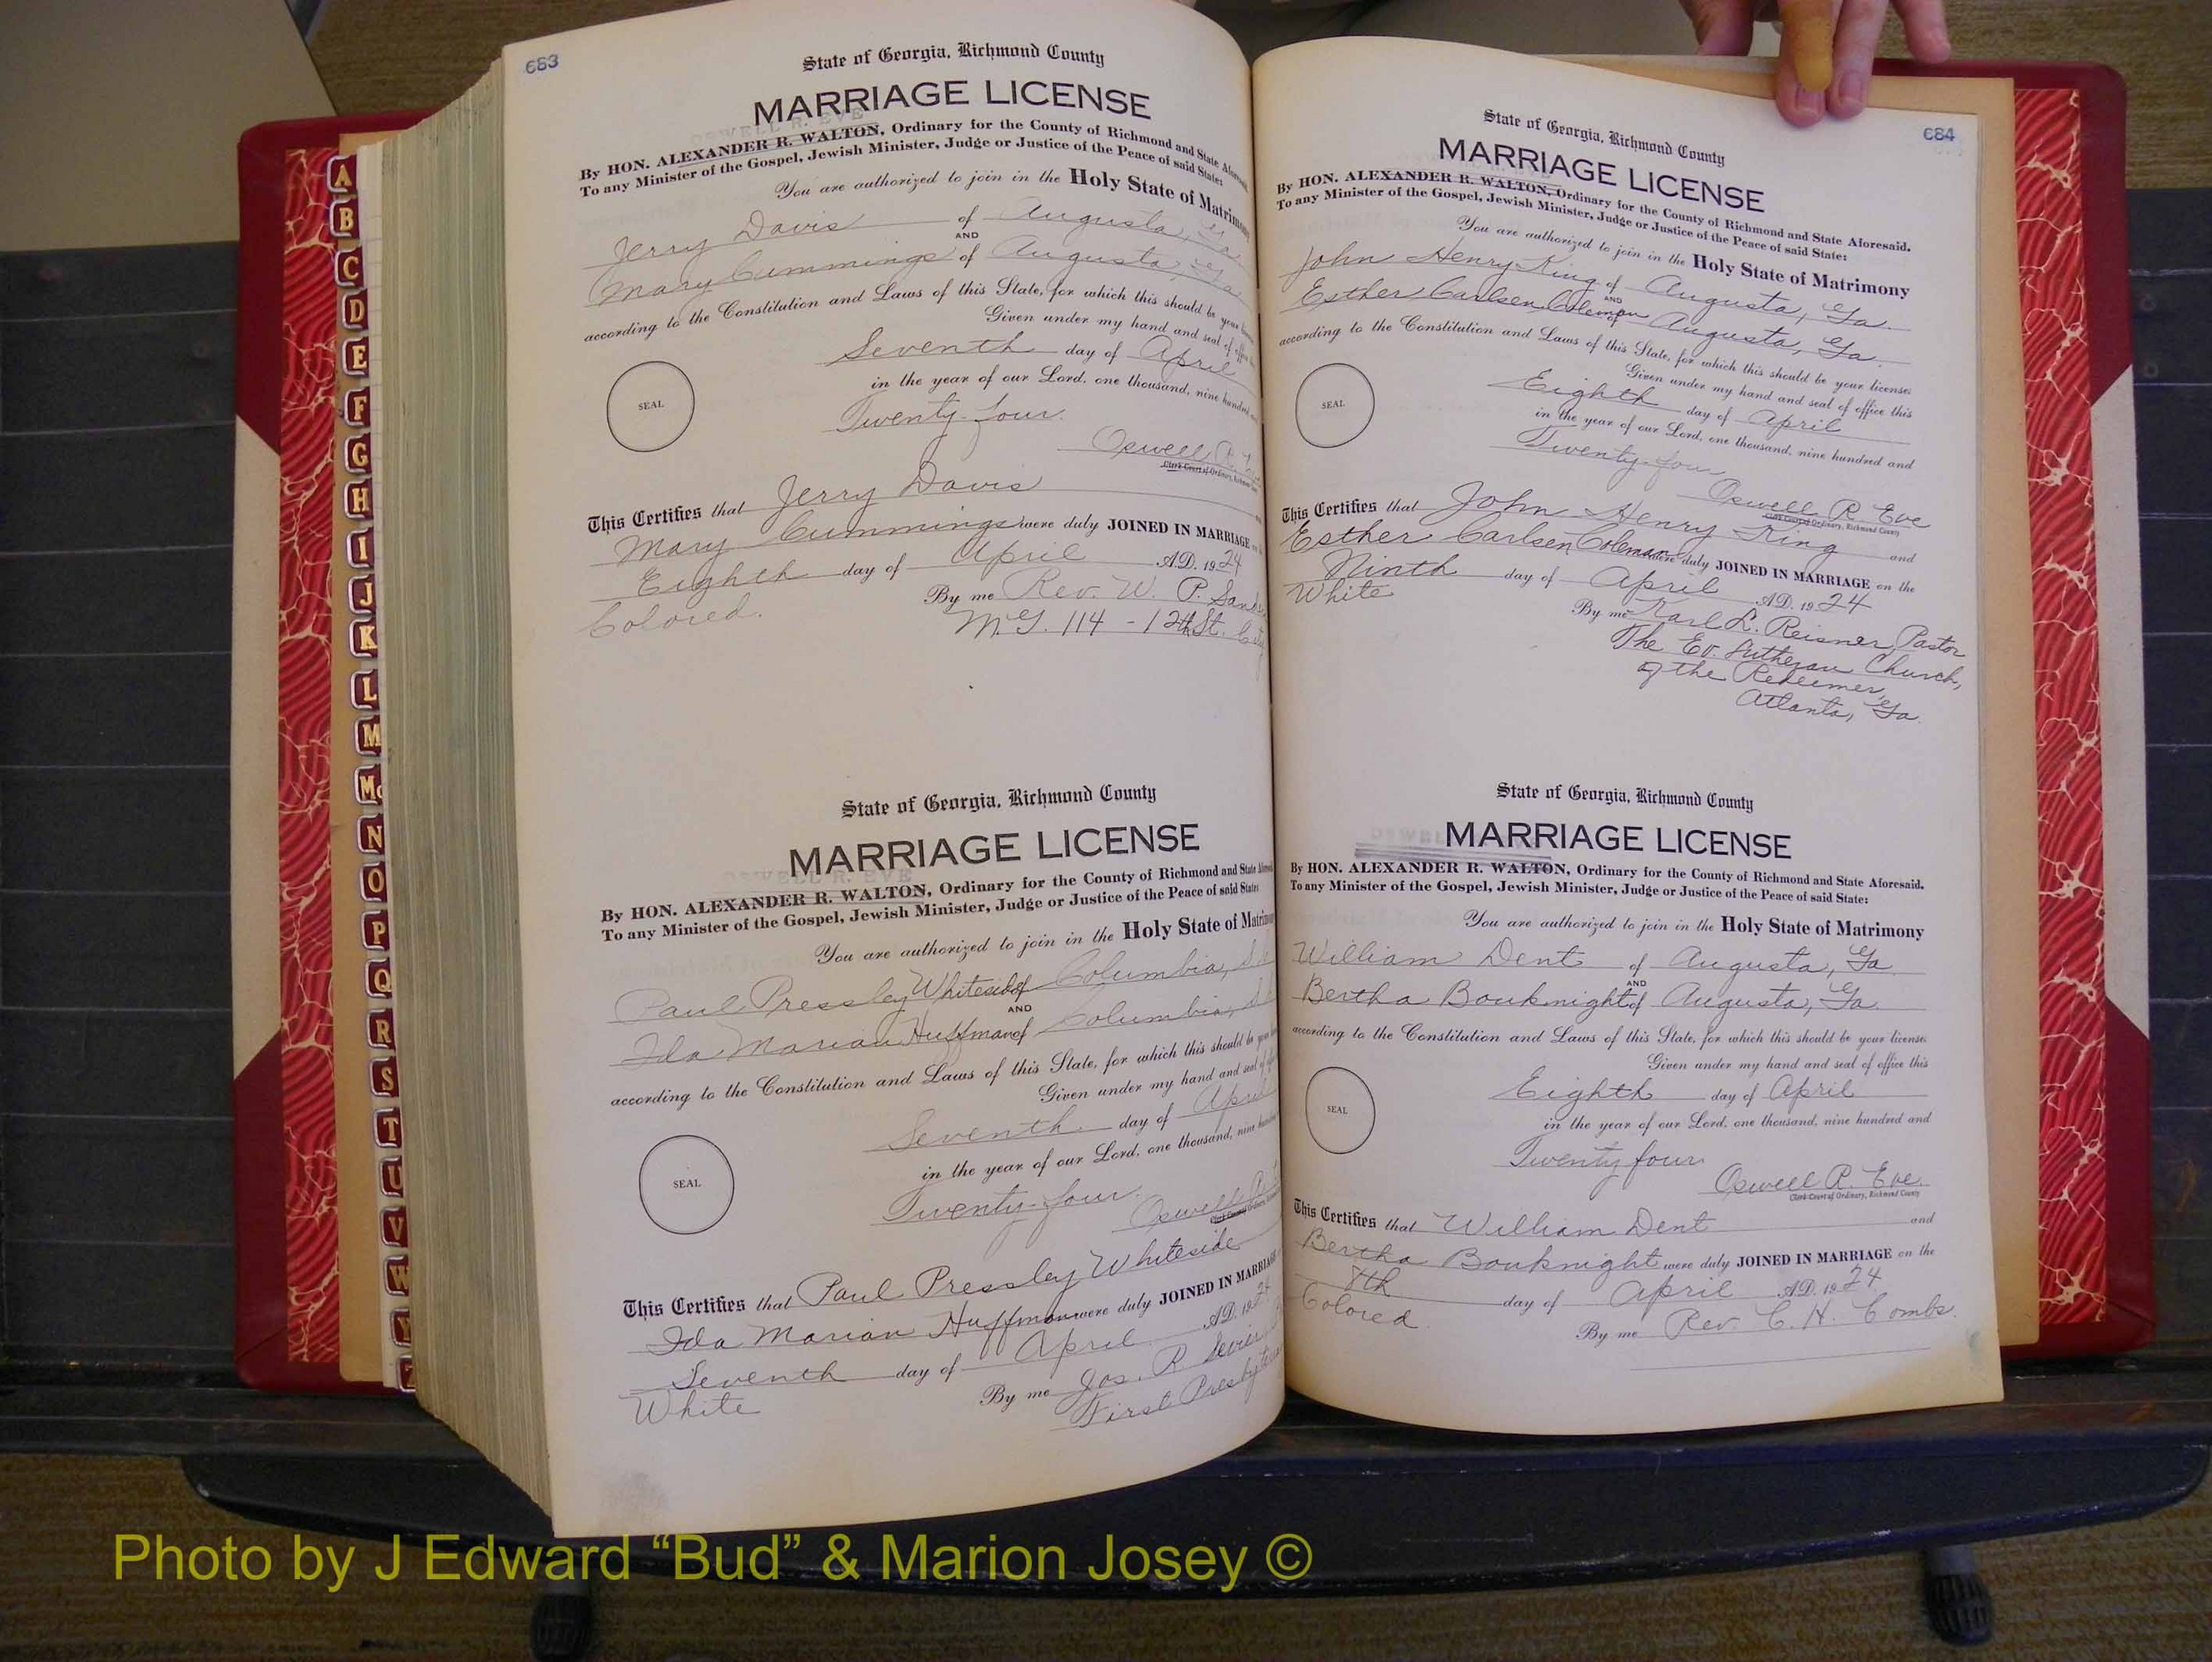 683
State of Georgia, Richmond County
MARRIAGE LICENSE
OSWELL R. EVE
By HON. ALEXANDER R. WALTON, Ordinary for the County of Richmond and State Aforesaid.
To any Minister of the Gospel, Jewish Minister, Judge or Justice of the Peace of said State:
You are authorized to join in the Holy State of Matrimony
Jerry Davis of Augusta, Ga
AND
Mary Cummings of Augusta, Ga
according to the Constitution and Laws of this State, for which this should be your
Given under my hand and seal of office
Seventh day of April
in the year of our Lord, one thousand, nine hundred
Twenty-four.
SEAL
Oswell R.
Clerk Court of Ordinary, Richmond
This Certifies that Jerry Davis
Mary Cummings were duly JOINED IN MARRIAGE
Eighth day of April A.D. 1924
Colored.
By me Rev. W. P.
M.G. 114 - 12th St. City
State of Georgia, Richmond County
MARRIAGE LICENSE
OSWELL R. EVE
By HON. ALEXANDER R. WALTON, Ordinary for the County of Richmond and State
To any Minister of the Gospel, Jewish Minister, Judge or Justice of the Peace of said State:
You are authorized to join in the Holy State of
Paul Pressley Whiteside of Columbia, S
AND
Ida Marian Huffman of Columbia, S
according to the Constitution and Laws of this State, for which this should be your
Given under my hand and seal of
Seventh day of April
in the year of our Lord, one thousand, nine
Twenty-four.
SEAL
Oswell R.
Clerk Court of Ordinary,
This Certifies that Paul Pressley Whiteside
Ida Marian Huffman were duly JOINED IN MARRIAGE
Seventh day of April A.D. 1924
White
By me Jos. R Sevier
First
684
State of Georgia, Richmond County
MARRIAGE LICENSE
By HON. ALEXANDER R. WALTON, Ordinary for the County of Richmond and State Aforesaid.
To any Minister of the Gospel, Jewish Minister, Judge or Justice of the Peace of said State:
You are authorized to join in the Holy State of Matrimony
John Henry King of Augusta, Ga.
AND
Esther Carlsen Coleman of Augusta, Ga.
according to the Constitution and Laws of this State, for which this should be your license
Given under my hand and seal of office this
Eighth day of April
in the year of our Lord, one thousand, nine hundred and
Twenty-four
SEAL
Oswell R Eve
Clerk Court of Ordinary, Richmond County
This Certifies that John Henry King and
Esther Carlsen Coleman were duly JOINED IN MARRIAGE on the
Ninth day of April A.D. 1924
White
By me Karl L. Reisner, Pastor
The Ev. Lutheran Church,
of the Redeemer,
Atlanta, Ga.
State of Georgia, Richmond County
MARRIAGE LICENSE
By HON. ALEXANDER R. WALTON, Ordinary for the County of Richmond and State Aforesaid.
To any Minister of the Gospel, Jewish Minister, Judge or Justice of the Peace of said State:
You are authorized to join in the Holy State of Matrimony
William Dent of Augusta, Ga
AND
Bertha Bouknight of Augusta, Ga.
according to the Constitution and Laws of this State, for which this should be your license
Given under my hand and seal of office this
Eighth day of April
in the year of our Lord, one thousand, nine hundred and
Twenty four
SEAL
Oswell R. Eve.
Clerk Court of Ordinary, Richmond County
This Certifies that William Dent and
Bertha Bouknight were duly JOINED IN MARRIAGE on the
8th day of April A.D. 1924
Colored.
By me Rev. C. H. Combs.
A
B
C
D
E
F
G
H
I
J
K
L
M
Mc
N
O
P
Q
R
S
T
U
V
W
Y
Z
Photo by J Edward “Bud” & Marion Josey ©